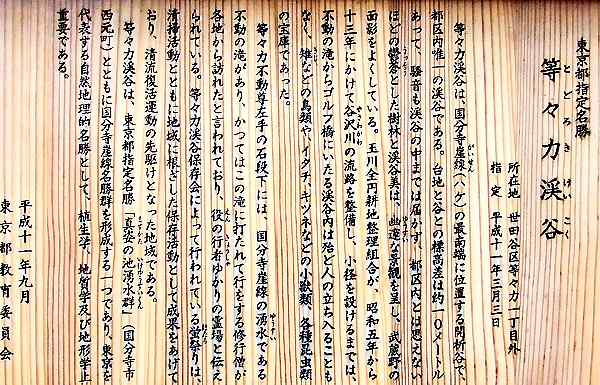 東京都指定名勝
等々力渓谷
とどろきけいこく
所在地 世田谷区等々力一丁目外
指定 平成十一年三月三日
等々力渓谷は、国分寺崖線(ハケ)の最南端に位置する開析谷で、
都区内唯一の渓谷である。台地と谷との標高差は約一〇メートル
あって、騒音も渓谷の中までは届かず、都区内とは思えない
ほどの鬱蒼とした樹林と渓谷美は、幽邃な景観を呈し、武蔵野の
面影をよくしている。玉川全円耕地整理組合が、昭和五年から
十三年にかけて谷沢川の流路を整備し、小径を設けるまでは、
不動の滝からゴルフ橋にいたる渓谷内は殆ど人の立ち入ることも
なく、雉などの鳥類や、イタチ、キツネなどの小獣類、各種昆虫類
の宝庫であった。
等々力不動尊左手の石段下には、国分寺崖線の湧水である
不動の滝があり、かつてはこの滝に打たれて行をする修行僧が
各地から訪れたと言われており、役の行者ゆかりの霊場と伝え
られている。等々力渓谷保存会によって行われている蛍祭りは、
清掃活動とともに地域に根ざした保存活動として成果をあげて
おり、清流復活運動の先駆けとなった地域である。
等々力渓谷は、東京都指定名勝「真姿の池湧水群」(国分寺市
西元町)とともに国分寺崖線名勝群を形成する一つであり、東京を
代表する自然地理的名勝として、植生学、地質学及び地形学上
重要である。
平成十一年九月
東京都教育委員会